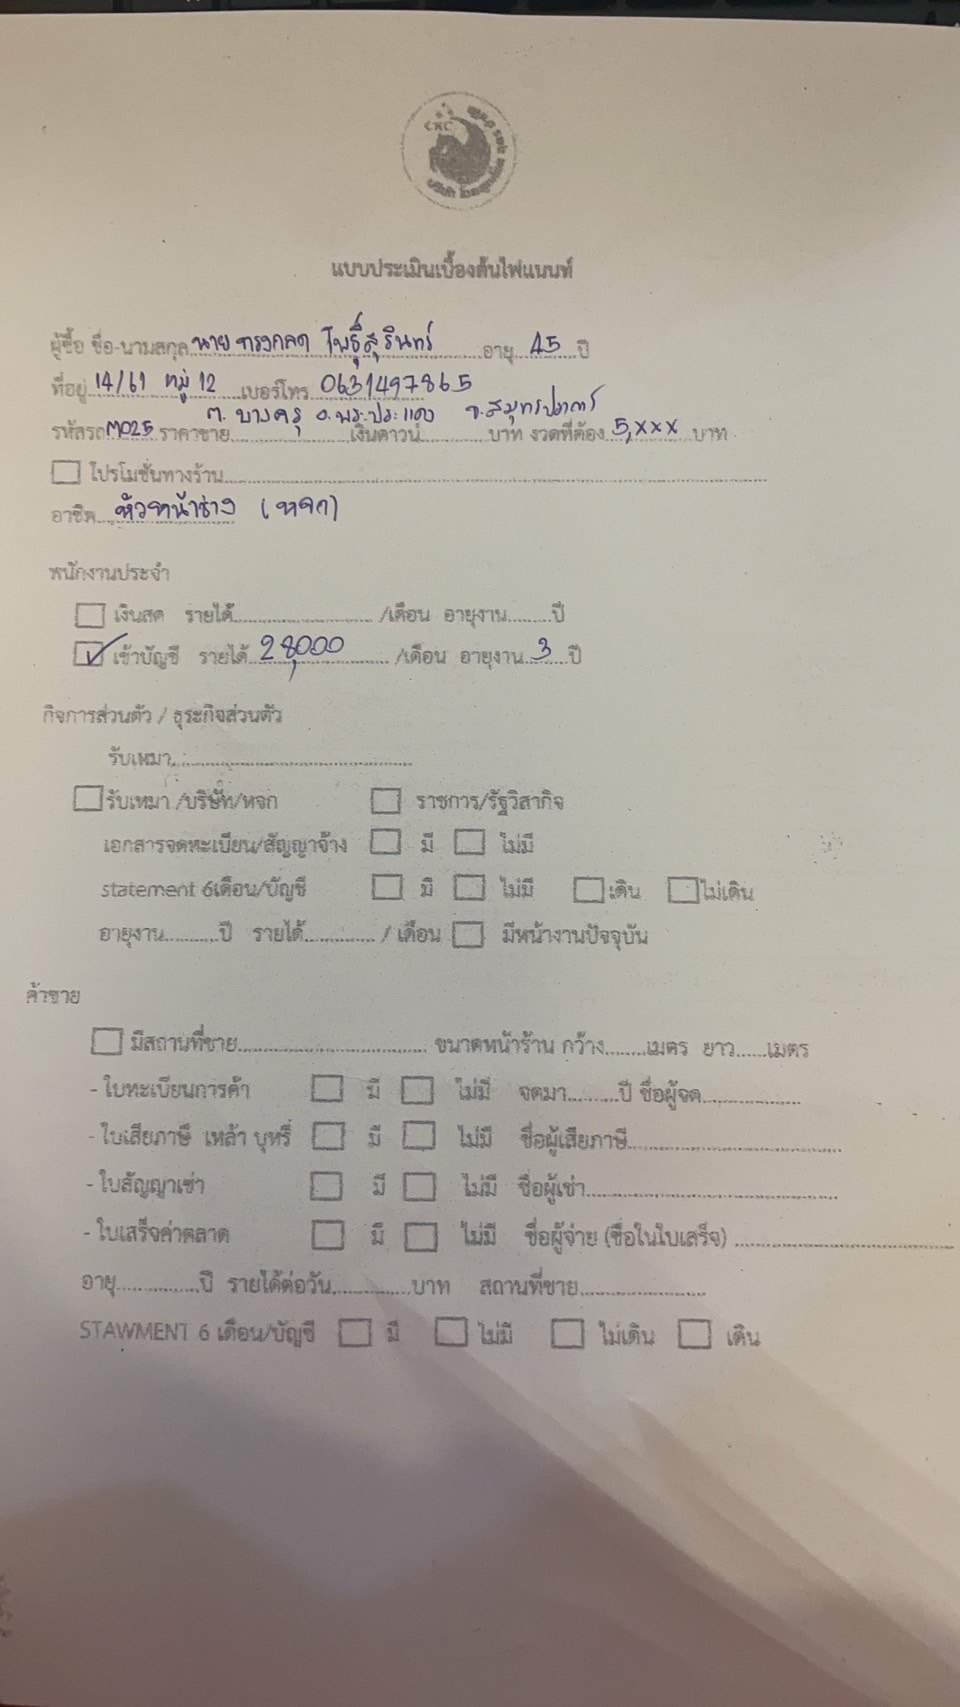 CKC
แบบประเมินเบื้องต้นไฟแนนท์
ผู้ซื้อ ชื่อ-นามสกุล นาย ทรงกลด โพธิ์สุรินทร์ อายุ 45 ปี
ที่อยู่ 14/61 หมู่ 12 เบอร์โทร 0631497865
ต. บางครุ อ.พระประแดง จ.สมุทรปราการ
รหัสรถ M025 ราคาขาย.................... เงินดาวน์............ บาท งวดที่ต้อง 5,xxx บาท
โปรโมชั่นทางร้าน....................
อาชีพ หัวหน้าช่าง (หจก)
พนักงานประจำ
เงินสด รายได้.................... /เดือน อายุงาน.........ปี
✓ เข้าบัญชี รายได้ 28,000 /เดือน อายุงาน 3 ปี
กิจการส่วนตัว / ธุระกิจส่วนตัว
รับเหมา....................
รับเหมา /บริษัท/หจก ราชการ/รัฐวิสากิจ
เอกสารจดทะเบียน/สัญญาจ้าง มี ไม่มี
statement 6เดือน/บัญชี มี ไม่มี เดิน ไม่เดิน
อายุงาน..........ปี รายได้............. / เดือน มีหน้างานปัจจุบัน
ค้าขาย
มีสถานที่ขาย.................... ขนาดหน้าร้าน กว้าง.......เมตร ยาว......เมตร
- ใบทะเบียนการค้า มี ไม่มี จดมา.........ปี ชื่อผู้จด....................
- ใบเสียภาษี เหล้า บุหรี่ มี ไม่มี ชื่อผู้เสียภาษี....................
- ใบสัญญาเช่า มี ไม่มี ชื่อผู้เช่า....................
- ใบเสร็จค่าตลาด มี ไม่มี ชื่อผู้จ่าย (ชื่อในใบเสร็จ) ....................
อายุ...............ปี รายได้ต่อวัน...............บาท สถานที่ขาย....................
STAWMENT 6 เดือน/บัญชี มี ไม่มี ไม่เดิน เดิน